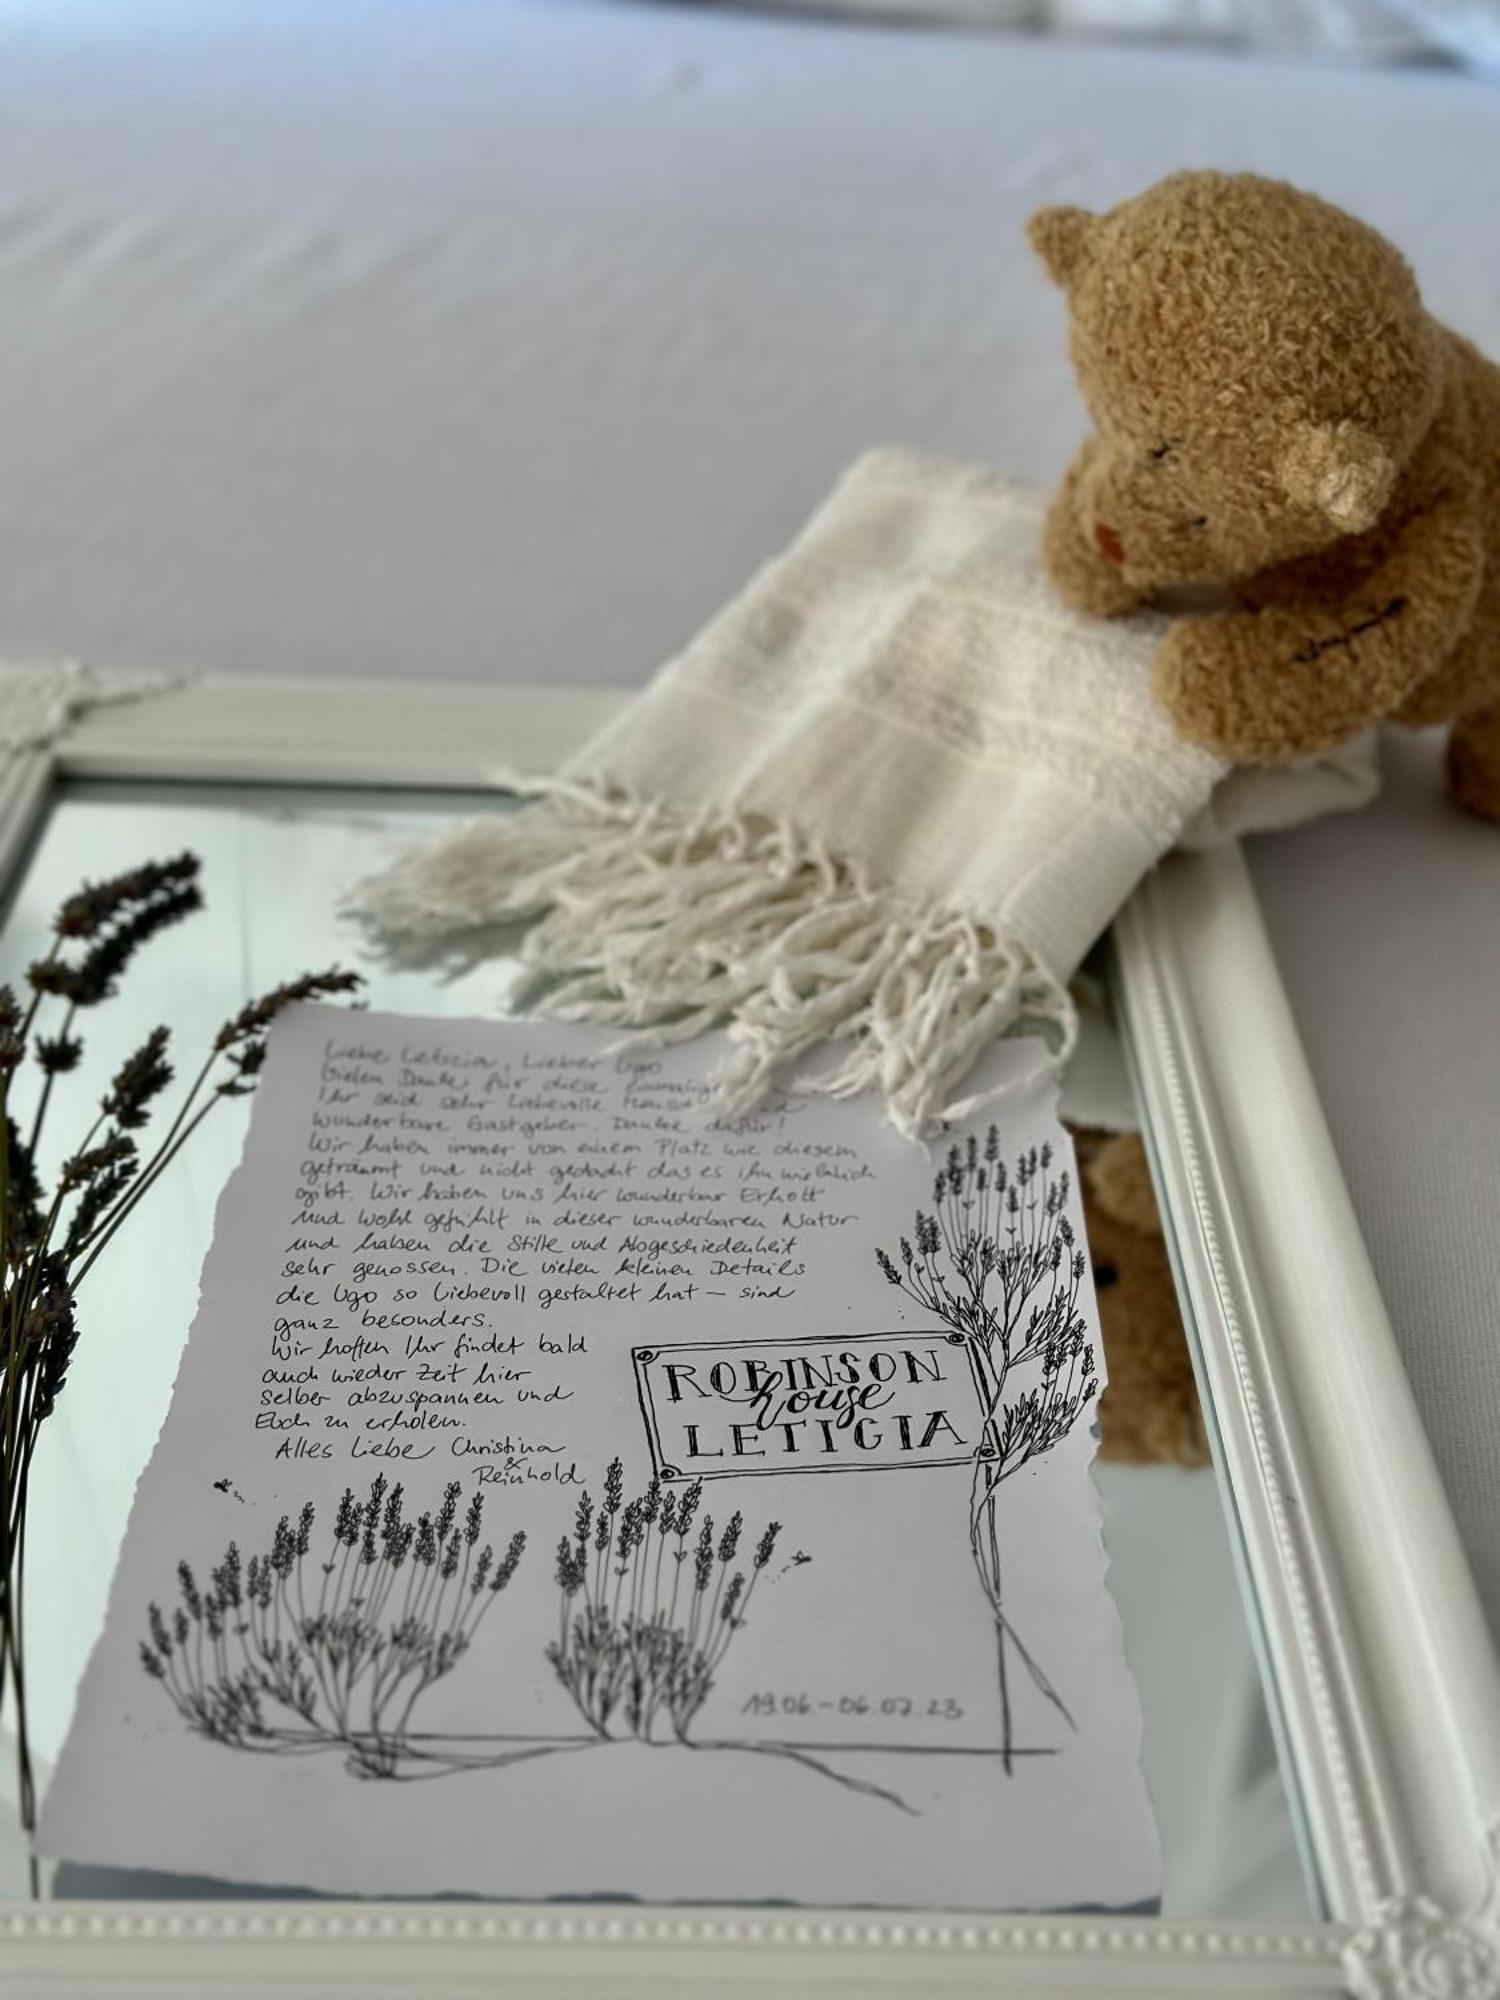 Liebe Leticia, Lieber Ugo
Vielen Danke für diese Einmalige
Ihr seid sehr Liebevolle
wunderbare Gastgeber. Danke dafür!
Wir haben immer von einem Platz wie diesem
geträumt und nicht gedacht das es ihn wirklich
gibt. Wir haben uns hier wunderbar Erholt
und wohl gefühlt in dieser wunderbaren Natur
und haben die Stille und Abgeschiedenheit
sehr genossen. Die vielen kleinen Details
die Ugo so Liebevoll gestaltet hat – sind
ganz besonders.
Wir hoffen Ihr findet bald
auch wieder Zeit hier
selber abzuspannen und
Euch zu erholen.
Alles Liebe Christina
&
Reinhold
ROBINSON
house
LETIGIA
19.06.–06.07.23